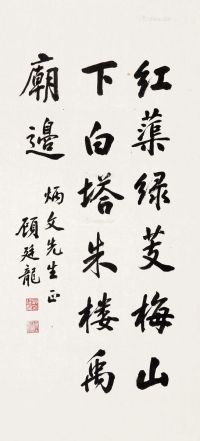 红蕖绿芰梅山
下白塔朱楼禹
廟邊
炳文先生正
顧廷龍